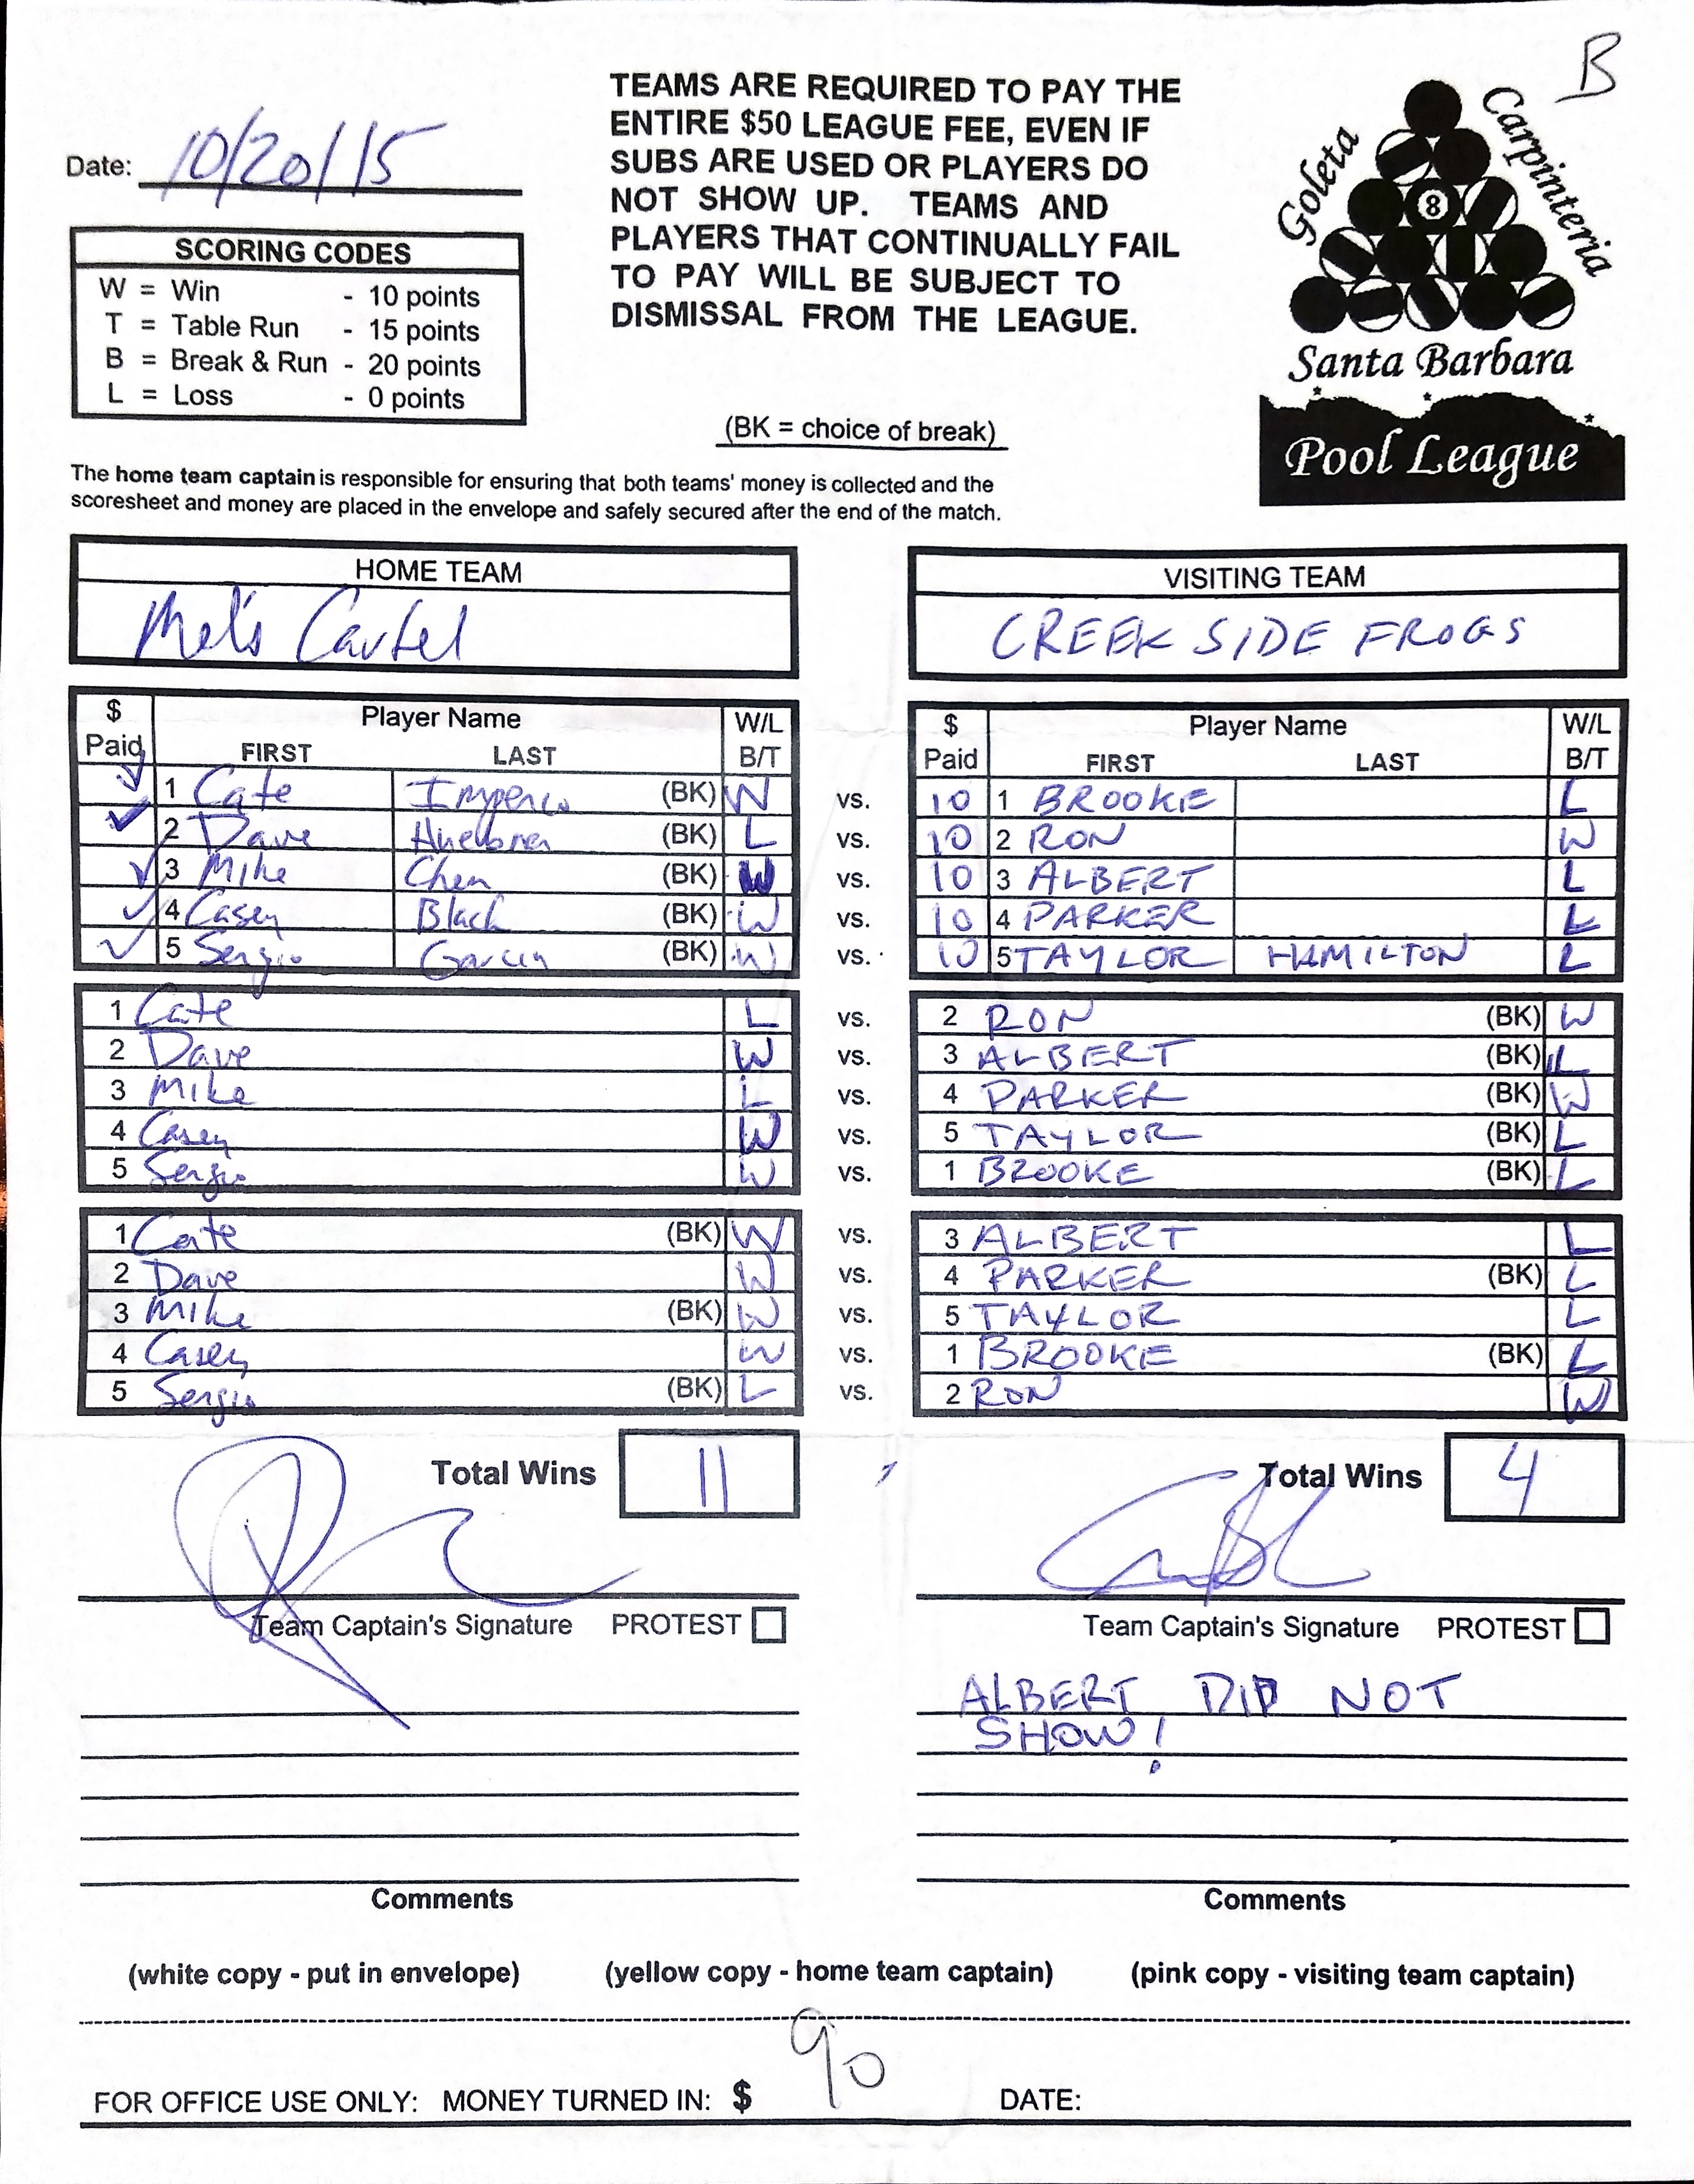 B
Date: 10/20/15
TEAMS ARE REQUIRED TO PAY THE
ENTIRE $50 LEAGUE FEE, EVEN IF
SUBS ARE USED OR PLAYERS DO
NOT SHOW UP. TEAMS AND
PLAYERS THAT CONTINUALLY FAIL
TO PAY WILL BE SUBJECT TO
DISMISSAL FROM THE LEAGUE.
SCORING CODES
W = Win - 10 points
T = Table Run - 15 points
B = Break & Run - 20 points
L = Loss - 0 points
(BK = choice of break)
Goleta
Carpinteria
8
Santa Barbara
Pool League
The home team captain is responsible for ensuring that both teams' money is collected and the
scoresheet and money are placed in the envelope and safely secured after the end of the match.
HOME TEAM VISITING TEAM
Mel's Cartel CREEK SIDE FROGS
$ Paid Player Name FIRST LAST W/L B/T $ Paid Player Name FIRST LAST W/L B/T
✓ 1 Cate (BK) W vs. 10 1 BROOKE L
✓ 2 Dave (BK) L vs. 10 2 RON W
✓ 3 Mike Chen (BK) W vs. 10 3 ALBERT L
✓ 4 Casey Black (BK) W vs. 10 4 PARKER L
✓ 5 Sergio Garcia (BK) W vs. 10 5 TAYLOR HAMILTON L
1 Cate L vs. 2 RON (BK) W
2 Dave W vs. 3 ALBERT (BK) L
3 Mike L vs. 4 PARKER (BK) W
4 Casey W vs. 5 TAYLOR (BK) L
5 Sergio W vs. 1 BROOKE (BK) L
1 Cate (BK) W vs. 3 ALBERT L
2 Dave W vs. 4 PARKER (BK) L
3 Mike (BK) W vs. 5 TAYLOR L
4 Casey W vs. 1 BROOKE (BK) L
5 Sergio (BK) L vs. 2 RON W
Total Wins 11 Total Wins 4
Team Captain's Signature PROTEST Team Captain's Signature PROTEST
ALBERT DID NOT
SHOW!
Comments Comments
(white copy - put in envelope) (yellow copy - home team captain) (pink copy - visiting team captain)
FOR OFFICE USE ONLY: MONEY TURNED IN: $ 90 DATE: